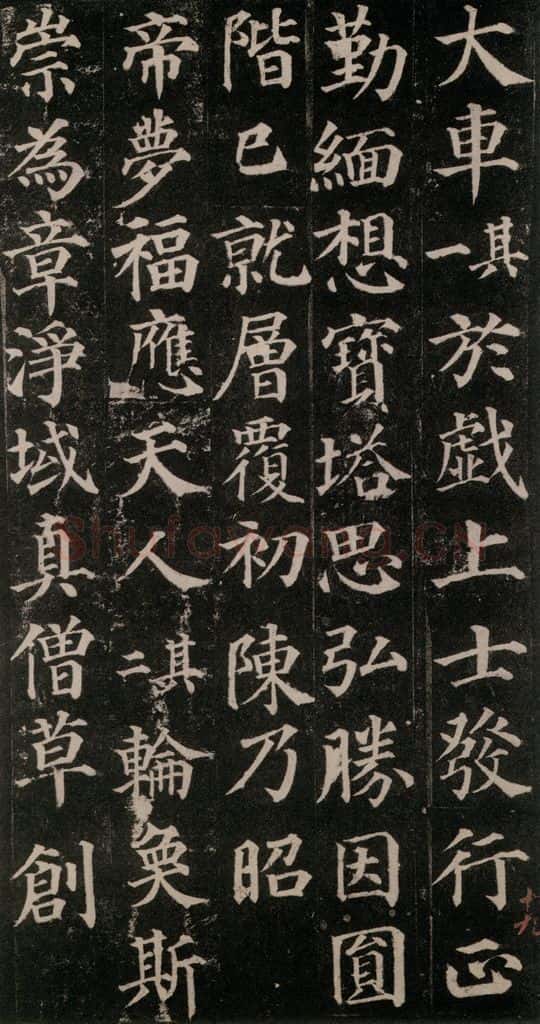 大車其一於戯上士發行正
勤緬想寶塔思弘勝因圓
階已就層覆初陳乃昭
帝夢福應天人其二輪奐斯
崇為章淨域真僧草創
十九
Shufawang.CN